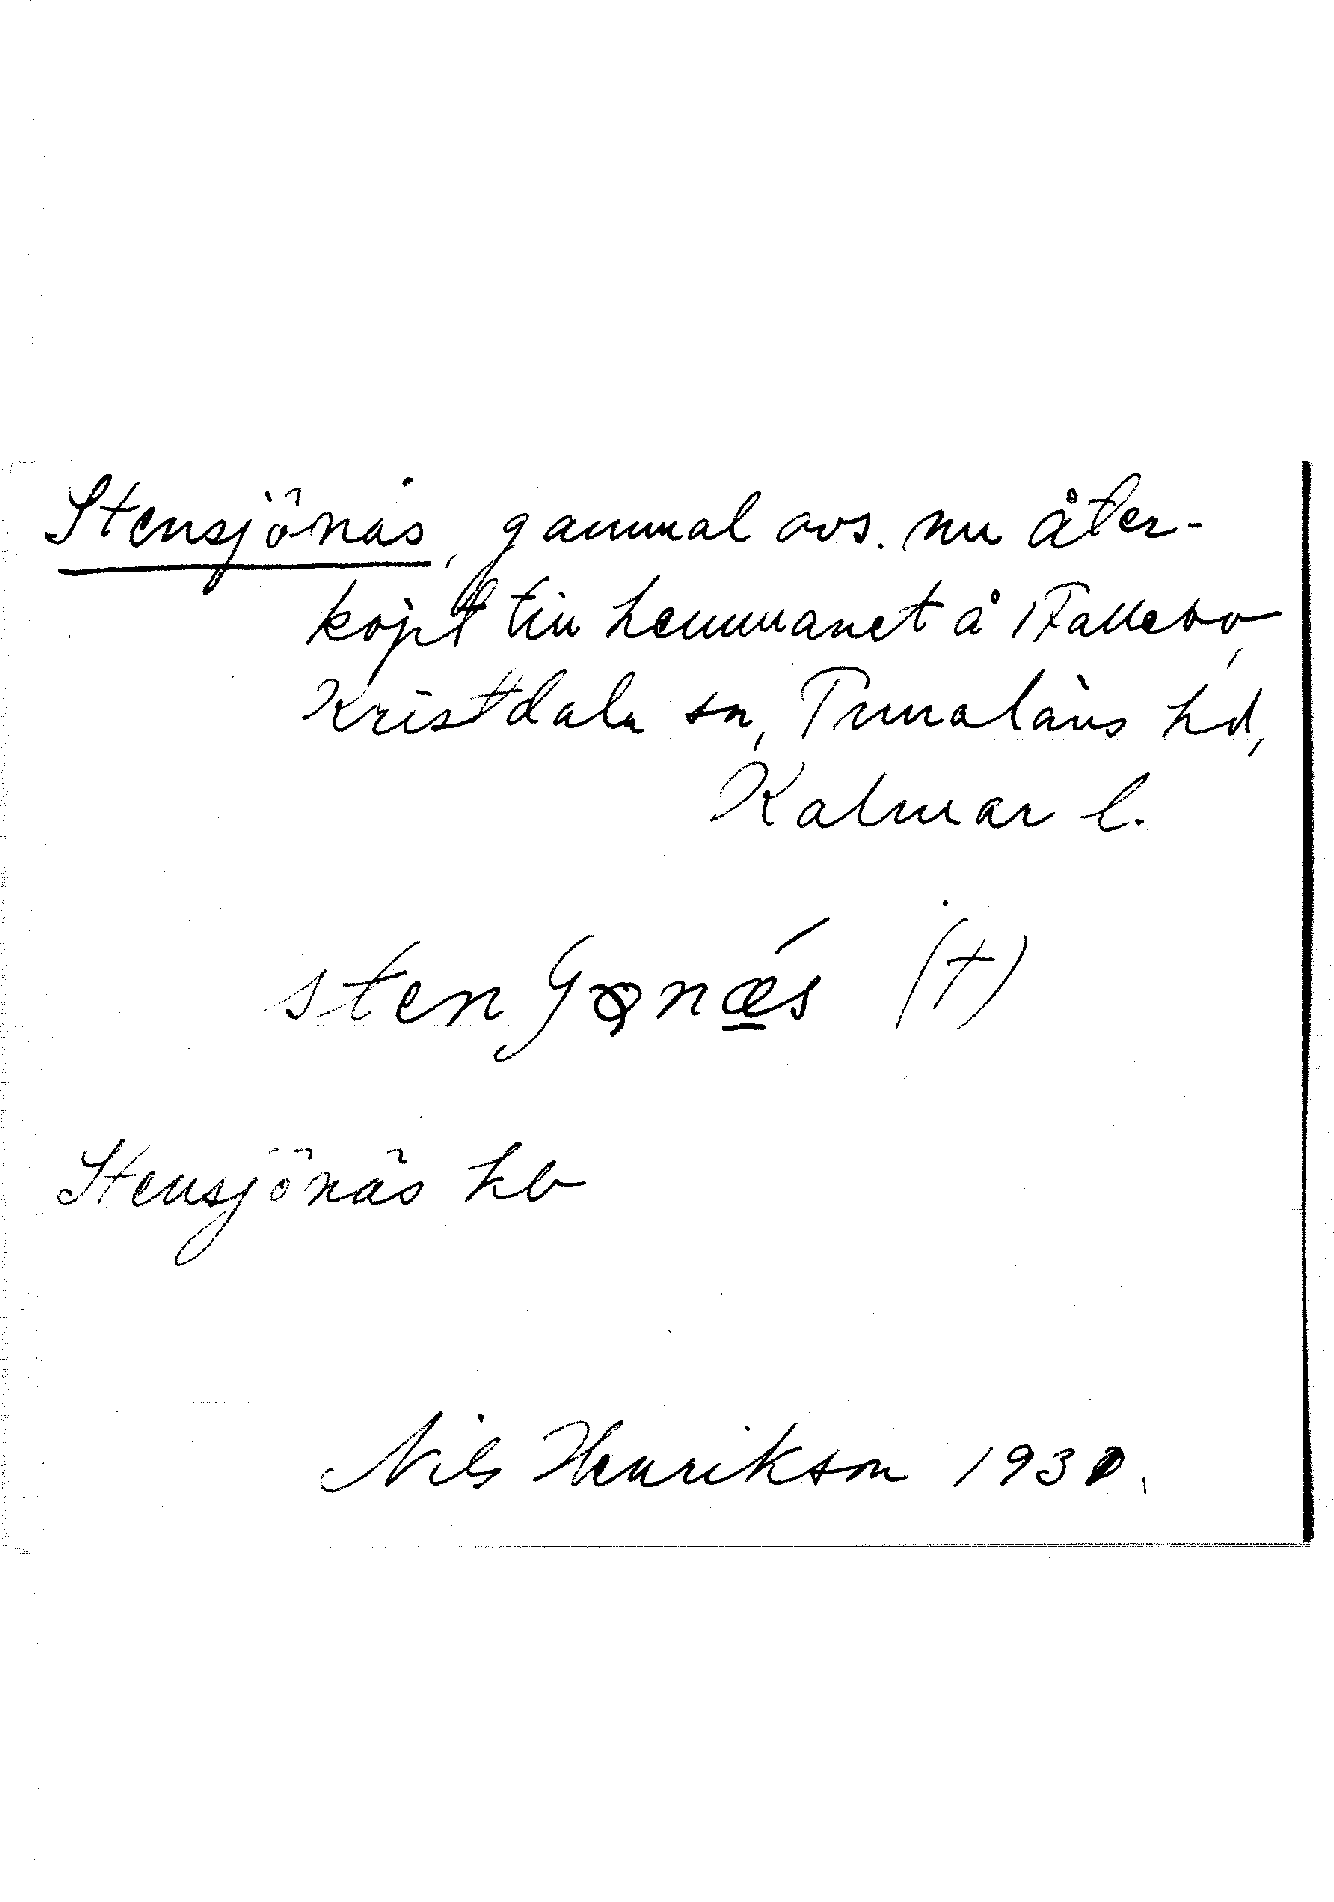 Stensjönäs, gammal avs. nu åter-
köpt till hemmanet å Fallebo,
Kristdala sn, Tunaläns hd,
Kalmar l.
stenʃɷnǽ̲s (†)
Stensjönäs hb
Nils Henrikson 1930.